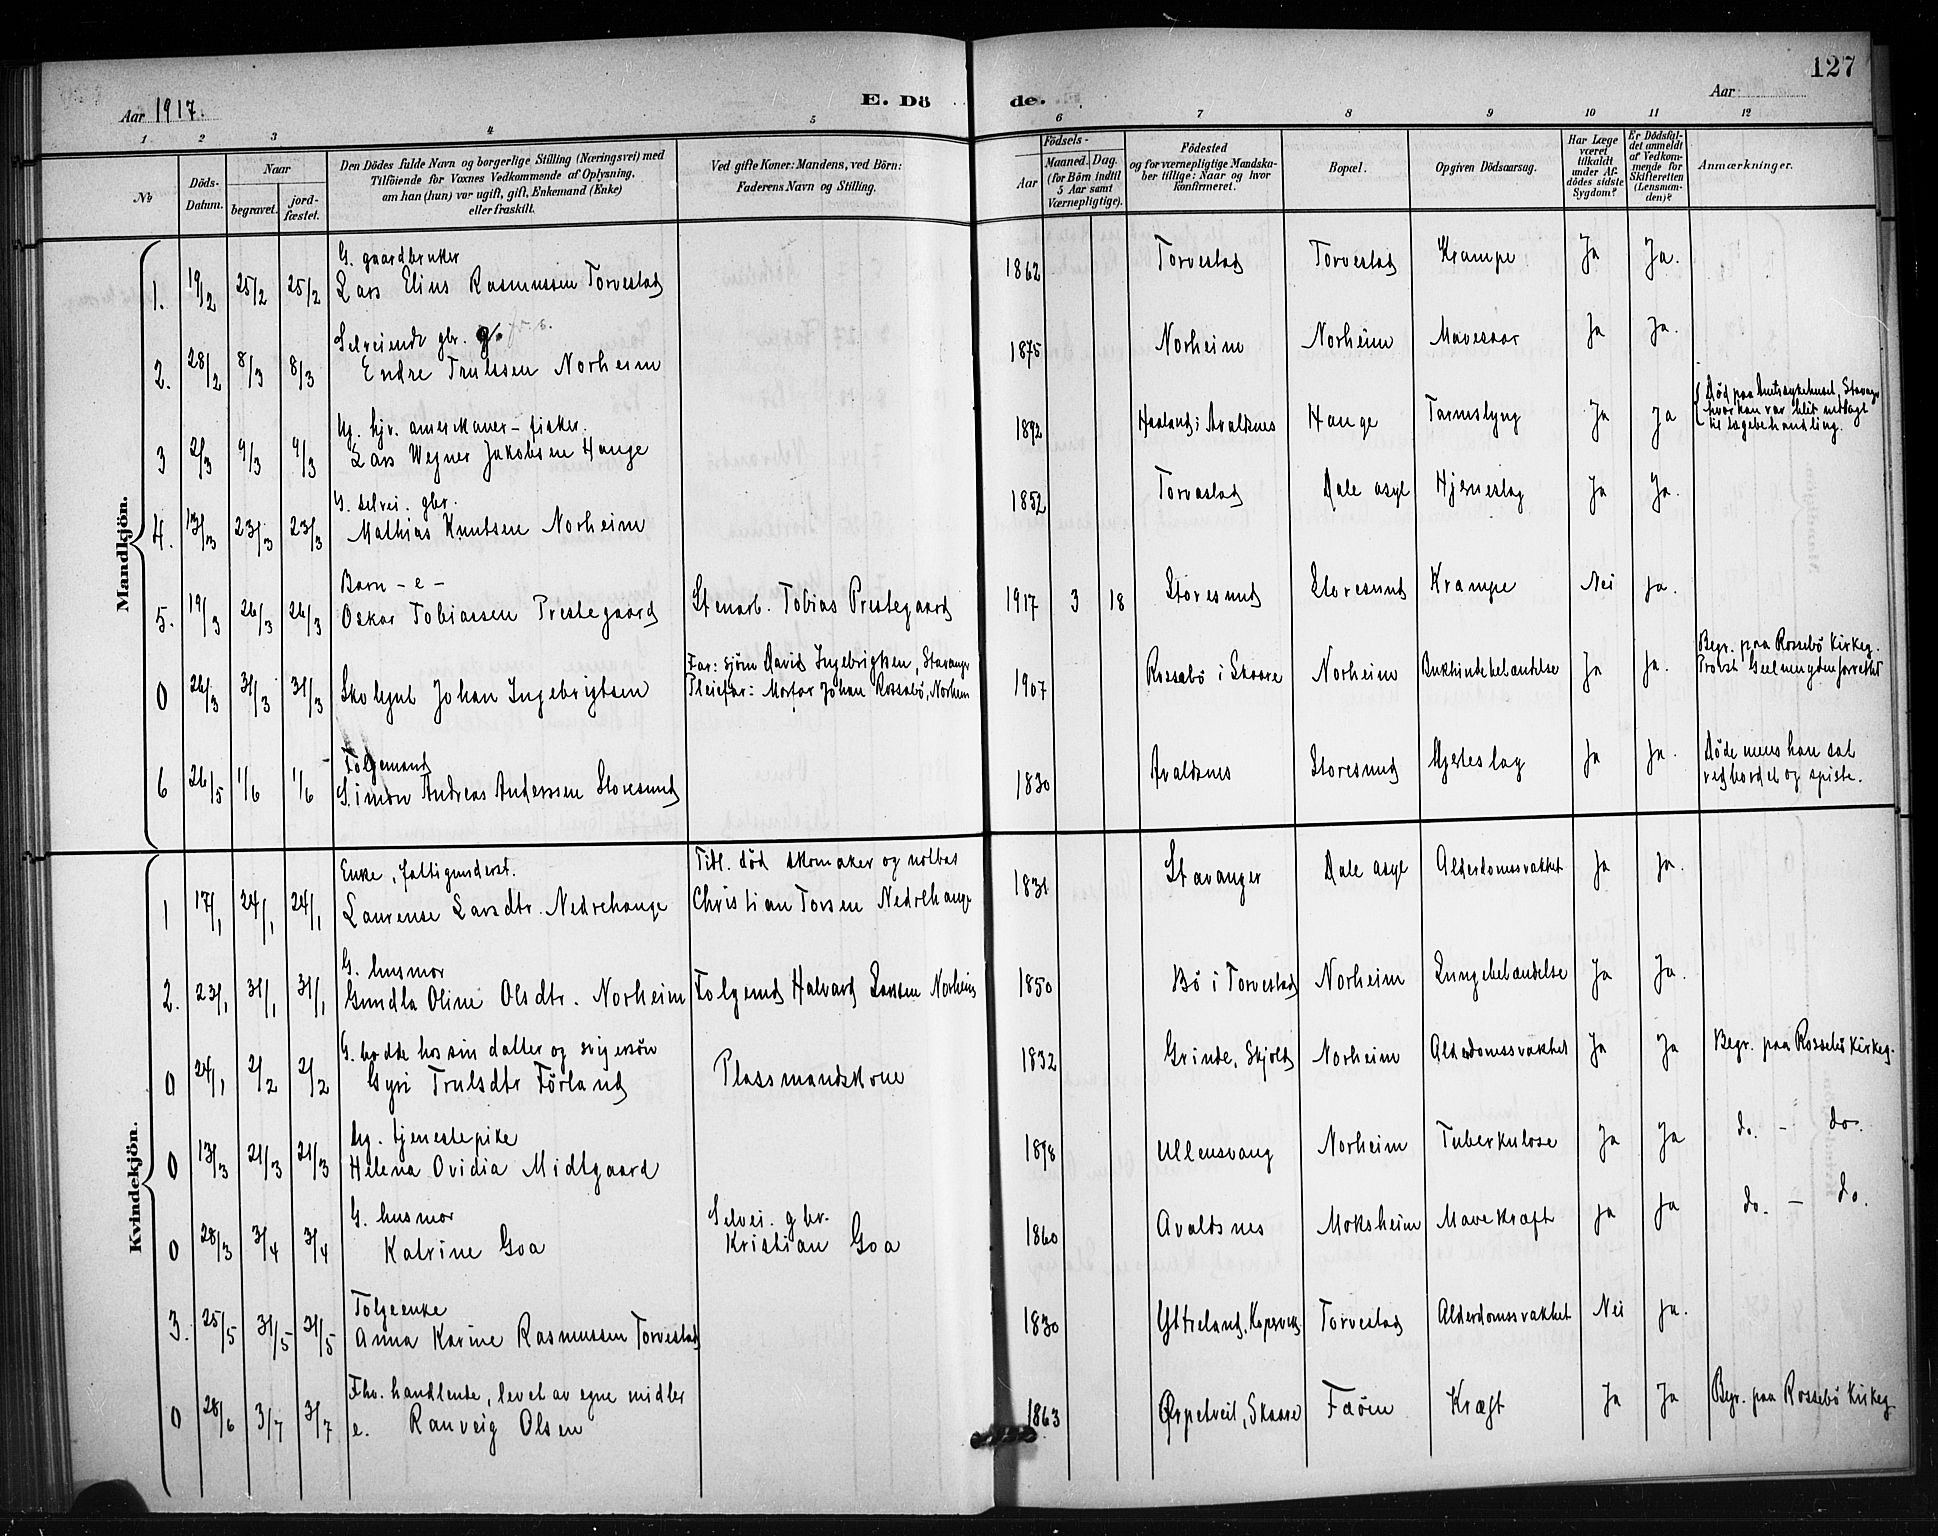 127
Aar 1917.
E. Dö de.
Aar
1 2 3 4 5 6 7 8 9 10 11 12
№
Döds-Datum.
Naar
begravet.
jord-fæstet.
Den Dödes fulde Navn og borgerlige Stilling (Næringsvei) med
Tilföiende for Voxnes Vedkommende af Oplysning,
om han (hun) var ugift, gift, Enkemand (Enke)
eller fraskilt.
Ved gifte Koner: Mandens, ved Börn:
Faderens Navn og Stilling.
Födsels-
Aar
Maaned. Dag.
(for Börn indtil
5 Aar samt
Værnepligtige).
Födested
og for værnepligtige Mandska-
ber tillige: Naar og hvor
konfirmeret.
Bopæl.
Opgiven Dödsaarsag.
Har Læge
været
tilkaldt
under Af-
dödes sidste
Sygdom?
Er Dödsfal-
det anmeldt
af Vedkom-
mende for
Skifteretten
(Lensman-
den)?
Anmærkninger.
Mandkjön.
G. gaardbruker
1. 19/2 25/2 25/2 Lars Elius Rasmussen Torvestad 1862 Torvestad Torvestad Krampe Ja Ja.
Selveiende gbr. g.
2. 28/2 8/3 8/3 Endre Trulssen Norheim 1875 Norheim Norheim Mavesaar Ja Ja.
Ug. hjv. amerikaner - fisker.
3 2/3 9/3 9/3 Lars Wegner Jakobsen Hauge 1892 Haaland i Avaldsnes Hauge Tarmslyng Ja Ja
Död paa Amtssykehuset, Stavanger
hvor han var blit indlagt
til lægebehandling.
G. selvei. gbr.
4. 13/3 23/3 23/3 Mathias Knutsen Norheim 1852 Torvestad Dale asyl Hjerneslag Ja Ja.
Barn - e -
5. 19/3 26/3 26/3 Oskar Tobiassen Prestegaard Stenarb. Tobias Prestegaard 1917 3 18 Storesund Storesund Krampe Nei Ja.
0 26/3 31/3 31/3 Skolegut Johan Ingebrigtsen
Far: sjöm David Ingebrigtsen, Stavanger
Pleiefar: Morfar Johan Rossebö, Norheim
1907 Rossebö i Skaare Norheim Bukhindebetændelse Ja Ja.
Begr. paa Rossebö Kirkeg.
Fölgemand
6 26/5 1/6 1/6 Simon Andreas Anderssen Storesund 1830 Avaldsnes Storesund Hjerteslag Ja Ja.
Döde mens han sat
ved bordet og spiste.
Kvindekjön.
Enke, fattigunderst.
1 17/1 24/1 24/1 Laurense Larsdtr. Nedrehauge
Tidl. död skomaker og notbas
Christian Torsen Nedrehauge
1831 Stavanger Dale asyl Alderdomssvakhet Ja Ja.
G. husmor
2. 23/1 31/1 31/1 Gundla Oline Olsdtr. Norheim Folgemd Halvard Larsen Norheim 1850 Bö i Torvestad Norheim Lungebetændelse Ja Ja.
G. bodde hos sin datter og svigersön
0 24/1 2/2 2/2 Gyri Trulsdtr Förland Plassmandskone 1832 Grinde, Skjold Norheim Alderdomssvakhet Ja Ja Begr. paa Rossebö Kirkeg.
Ug. tjenestepike
0 13/3 21/3 21/3 Helena Ovidia Midtgaard 1898 Ullensvang Norheim Tuberkulose Ja Ja do. - do.
G. husmor
0 28/3 3/4 3/4 Katrine Goa
Selvei. gbr.
Kristian Goa
1860 Avaldsnes Moksheim Mavekræft Ja Ja do. - do.
Folgeenke
3. 25/5 31/5 31/5 Anna Karine Rasmussen Torvestad 1830 Ytreland, Kopervik Torvestad Alderdomssvakhet Nei Ja.
Fhv. handlende, levet av egne midler
0 28/6 3/7 3/7 e. Ranveig Olsen 1863 Eppelveit, Skaare Faöen Kræft Ja Ja Begr. paa Rossebö Kirkeg.